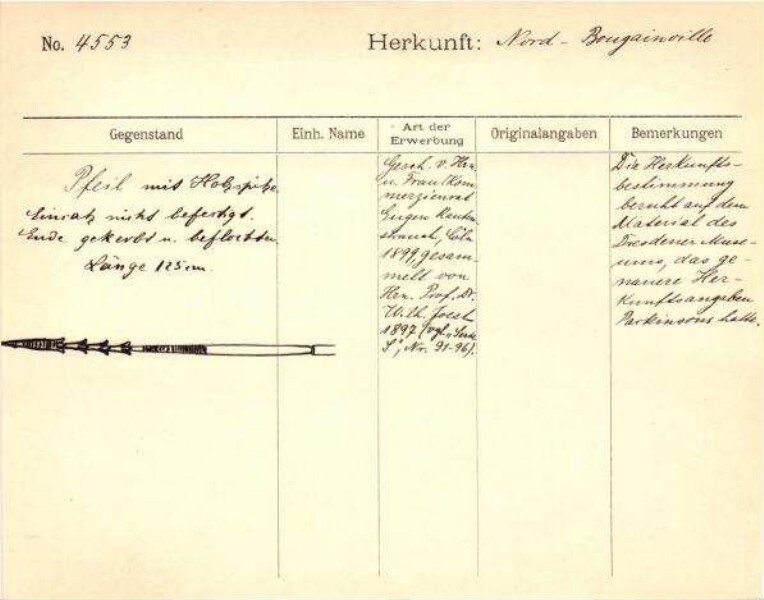 No. 4553
Herkunft: Nord-Bougainville
Gegenstand
Einh. Name
Art der
Erwerbung
Originalangaben
Bemerkungen
Pfeil mit Holzspitze.
Einsatz nicht befestigt.
Ende gekerbt u. beflochten.
Länge 125 cm.
Gesch. v. Hrn.
u. Frau Kom-
merzienrat
Eugen Rauten-
strauch, Cöln
1899, gesam-
melt von
Hrn. Prof. Dr.
Wilh. Joest
1897 (vgl.
S", Nr. 91-96).
Die Herkunfts-
bestimmung
beruht auf dem
Material des
Dresdener Muse-
ums, das ge-
nauere Her-
kunftsangaben
Parkinsons hatte.